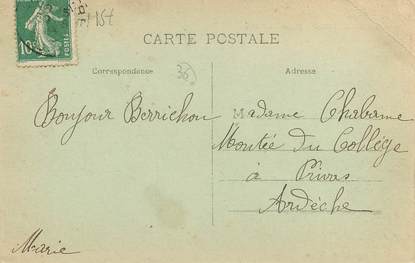 10c POSTES
154
CARTE POSTALE
Correspondance
36
Adresse
Bonjour Berrichon
Madame Chabanne
Montée du Collège
à Privas
Ardèche
Marie